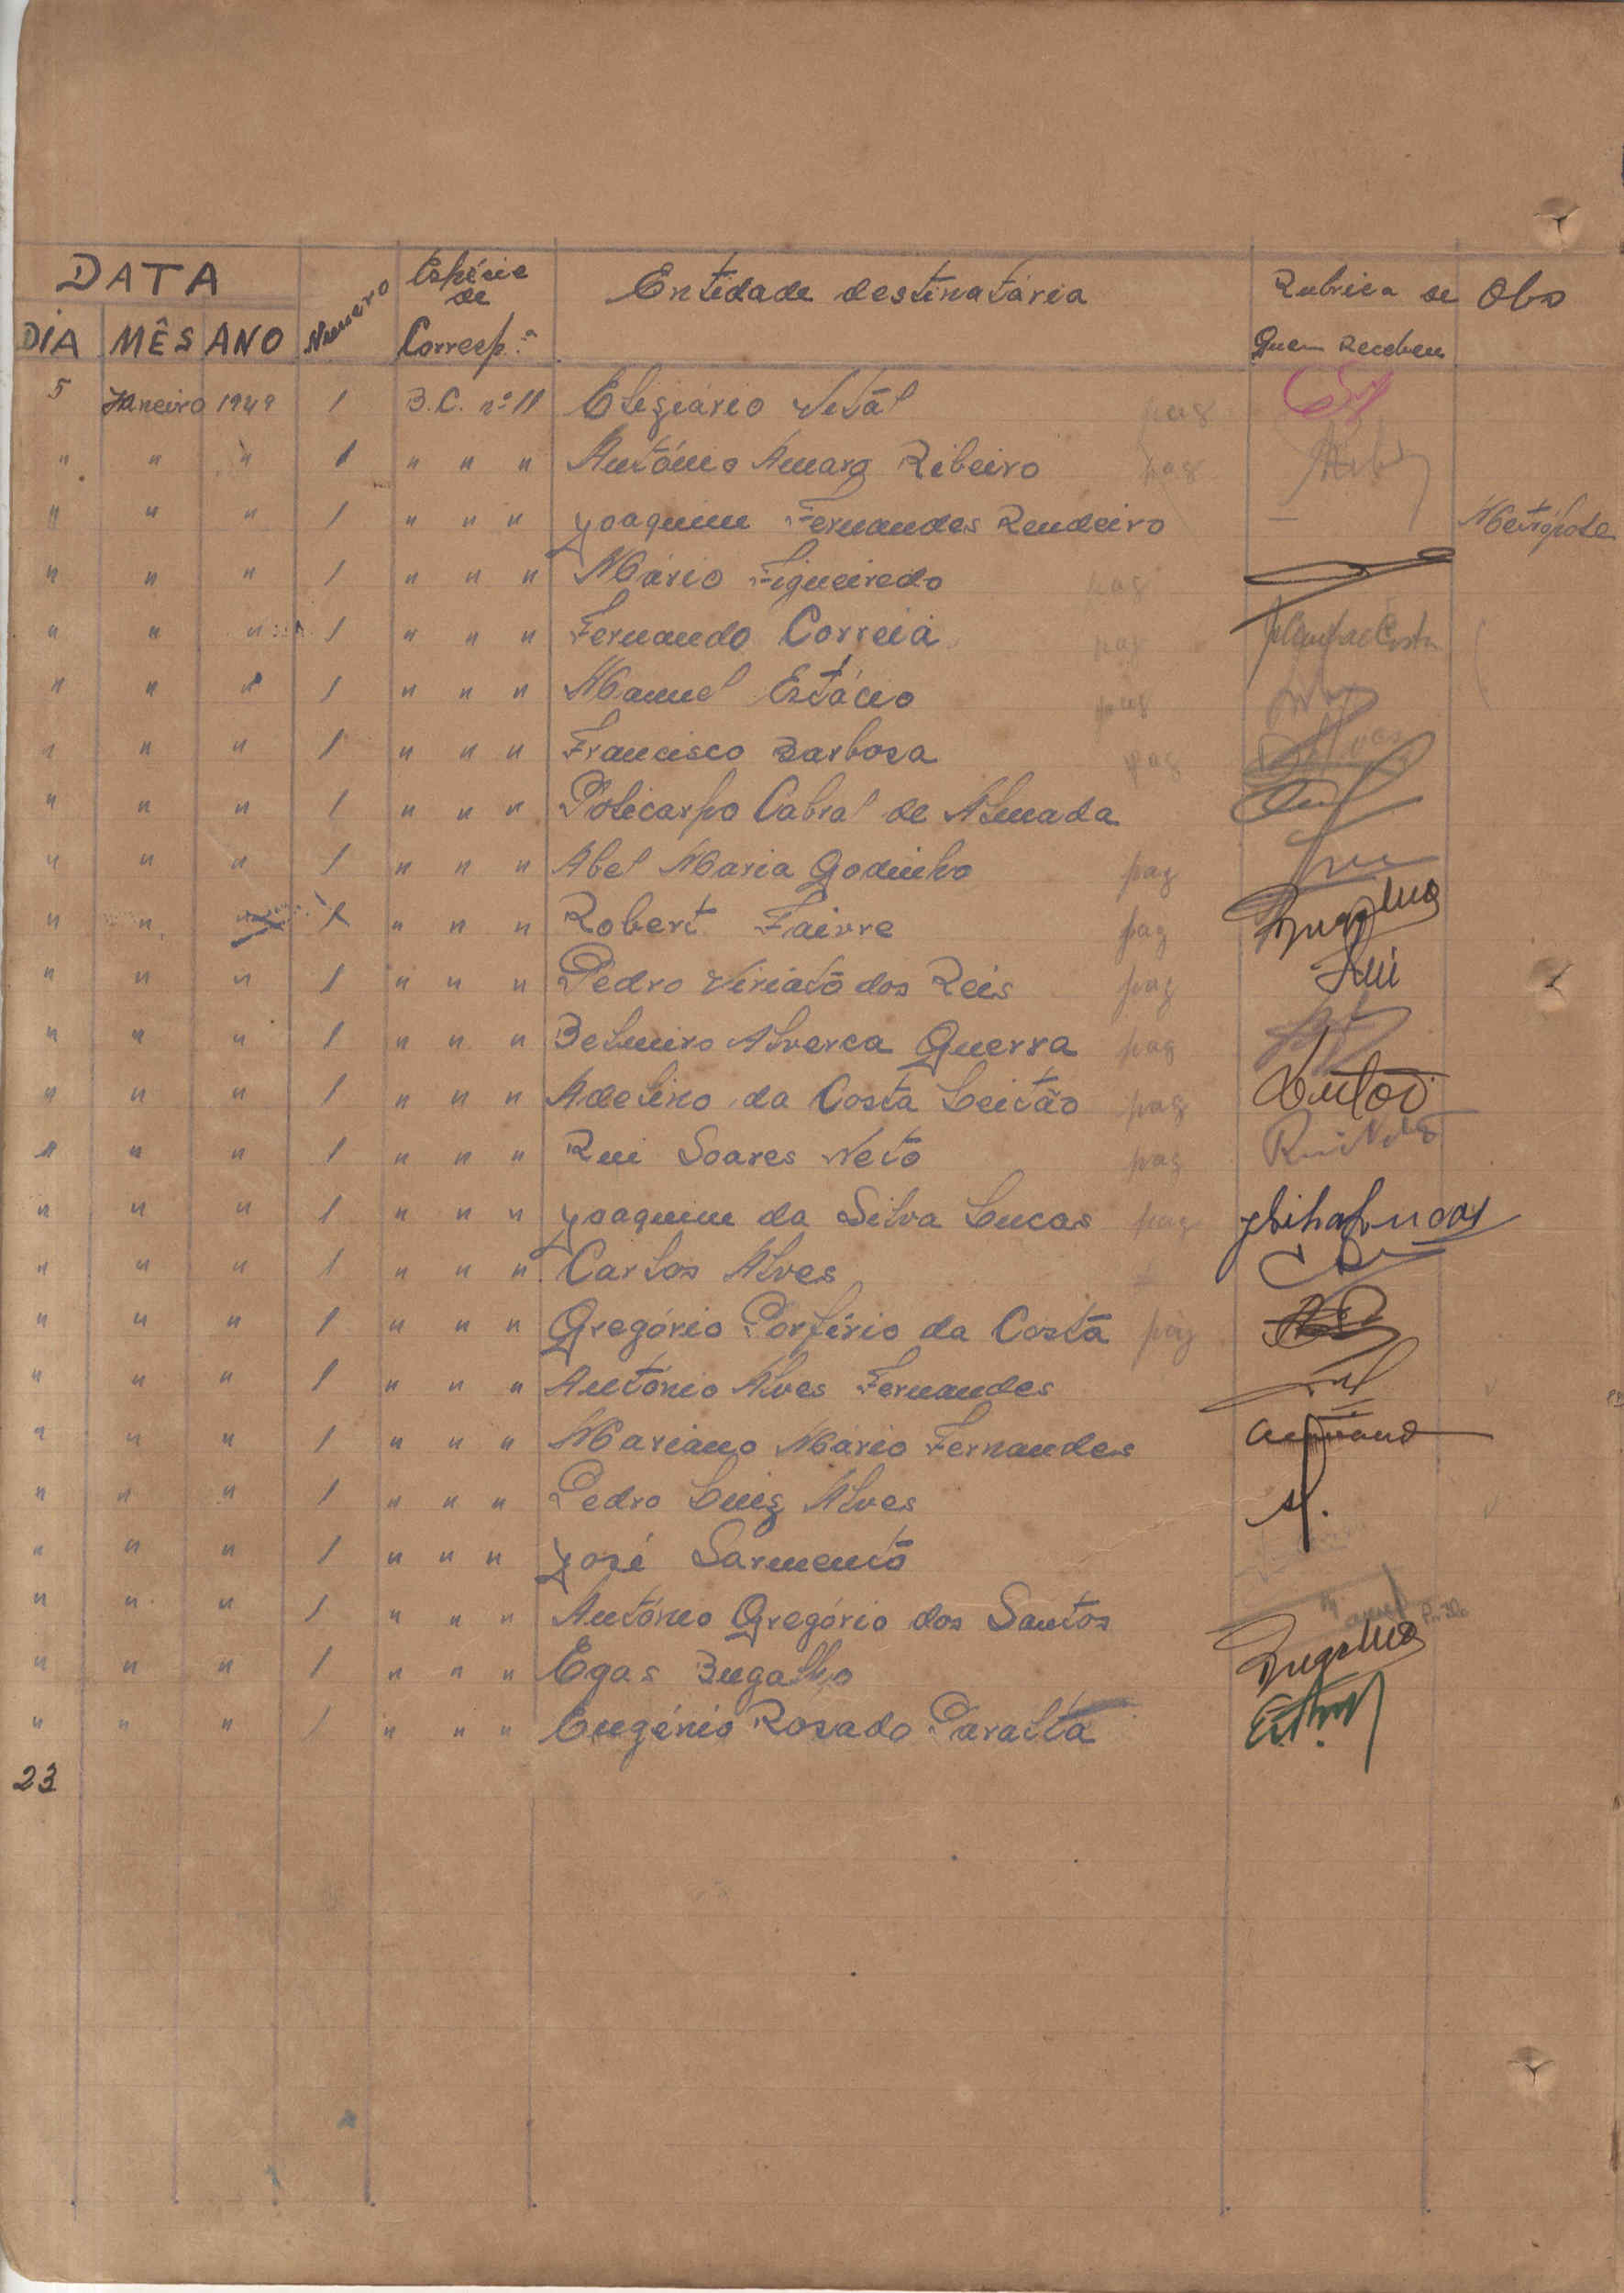 DATA Numero Espécie de Corresp.ª Entidade destinatária Rubrica de Quem Recebeu Obs
DIA MÊS ANO
5 Janeiro 1949 1 B.C. nº 11 Eligiário Vital pag
" " " 1 " " " António Amaro Ribeiro pag
" " " 1 " " " Joaquim Fernandes Rendeiro — Metrópole
" " " 1 " " " Mário Figueiredo pag
" " " 1 " " " Fernando Correia pag
" " " 1 " " " Manuel Estácio pag
" " " 1 " " " Francisco Barbosa pag
" " " 1 " " " Policarpo Cabral de Almada
" " " 1 " " " Abel Maria Godinho pag
" " " 1 " " " Robert Faivre pag Bugalho
" " " 1 " " " Pedro Viriato dos Reis pag
" " " 1 " " " Belmiro Alverca Guerra pag
" " " 1 " " " Adelino da Costa Leitão pag
" " " 1 " " " Rui Soares Neto pag Rui Neto
" " " 1 " " " Joaquim da Silva Lucas pag JSilvaLucas
" " " 1 " " " Carlos Alves
" " " 1 " " " Gregório Porfírio da Costa pag
" " " 1 " " " António Alves Fernandes
" " " 1 " " " Mariano Mário Fernandes
" " " 1 " " " Pedro Luiz Alves
" " " 1 " " " José Sarmento
" " " 1 " " " António Gregório dos Santos
" " " 1 " " " Egas Bugalho Bugalho
" " " 1 " " " Eugénio Rosado Paralta
23